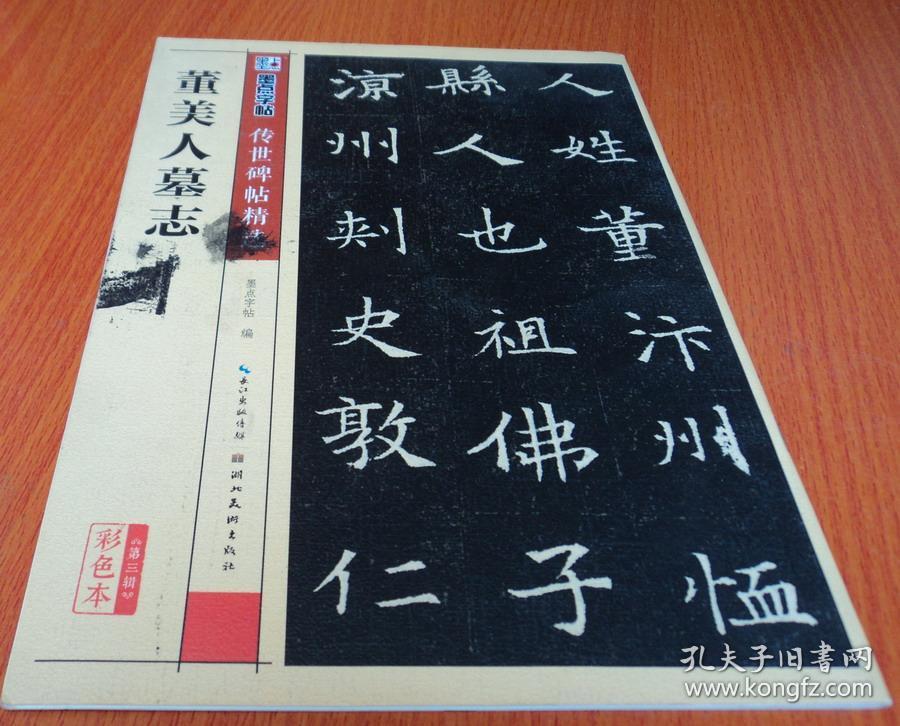 董美人墓志
墨点字帖
传世碑帖精
墨点字帖 编
长江出版传媒
湖北美术出版社
第三辑
彩色本
人姓董汴州恤
縣人也祖佛子
涼州刾史敦仁
孔夫子旧书网
www.kongfz.com